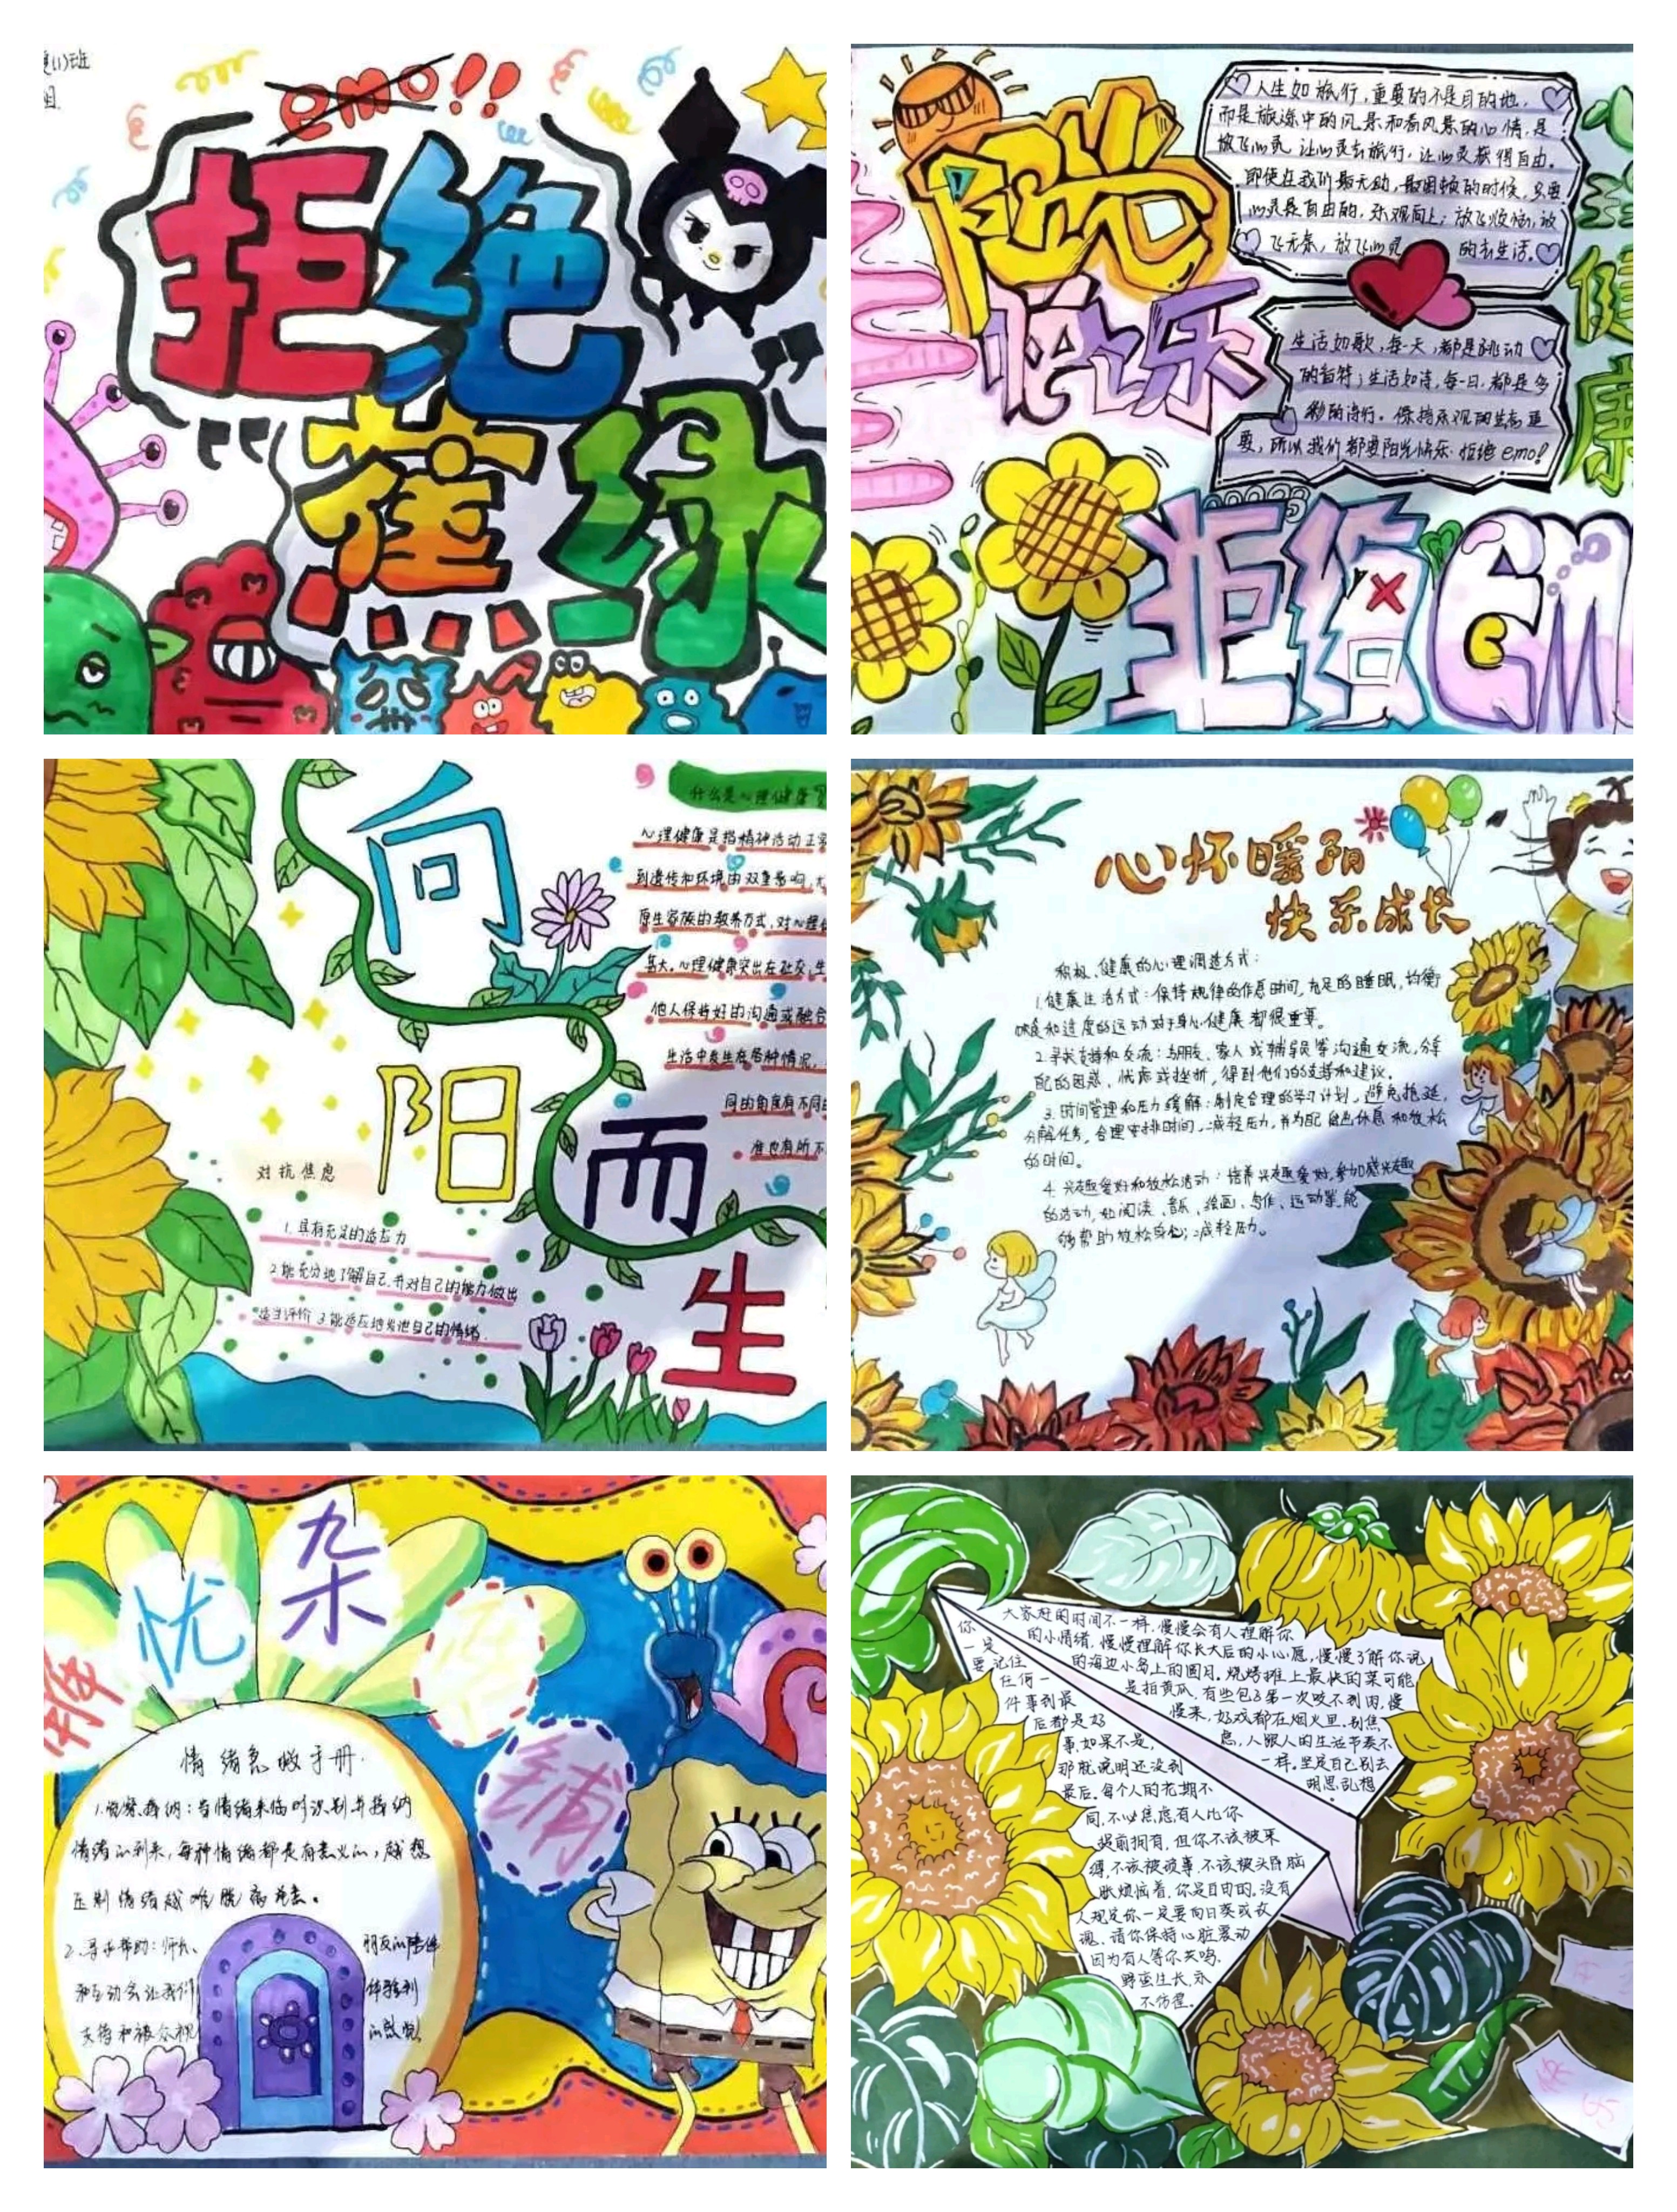 (1)班
组
emo!!
拒绝
蕉绿
阳光
快乐
人生如旅行,重要的不是目的地,
而是旅途中的风景和看风景的心情,是
放飞心灵,让心灵去旅行,让心灵获得自由。
即使在我们最无助,最困顿的时候,只要
心灵是自由的,乐观向上;放飞烦恼,放
飞元气,放飞心灵 的去生活。
生活如歌,每一天,都是跳动
的音符;生活如诗,每一日,都是多
彩的诗行。保持乐观的生态更
要,所以我们都要阳光快乐.拒绝emo!
心理健康
拒绝EM
向
阳
而
生
什么是心理健康
心理健康是指精神活动正常
到遗传和环境的双重影响,尤
原生家族的教养方式,对心理
甚大。心理健康突出在社交,生
他人保持好的沟通或融合
生活中发生在各种情况,
同的角度有不同
准也有所不
对抗焦虑
1.具有充足的适应力
2.能充分地了解自己,并对自己的能力做出
适当评价 3.能适应地发泄自己的情绪.
心怀暖阳
快乐成长
积极、健康的心理调适方式:
1.健康生活方式:保持规律的作息时间,充足的睡眠,均衡
饮食和适度的运动对于身心健康都很重要。
2.寻求支持和交流:与朋友、家人或辅导员等沟通交流,分享
自己的困惑、忧虑或挫折,得到他们的支持和建议。
3.时间管理和压力缓解:制定合理的学习计划,避免拖延,
分解任务,合理安排时间,减轻压力,并为自己留出休息和放松
的时间。
4.兴趣爱好和放松活动:培养兴趣爱好,参加感兴趣
的活动,如阅读、音乐、绘画、写作、运动等,能
够帮助放松身心,减轻压力。
解
忧
杂
铺
情绪急救手册.
1.觉察接纳:当情绪来临时识别并接纳
情绪的到来,每种情绪都是有意义的,越想
压制情绪越难脱离苦。
2.寻求帮助:师长、 朋友的陪伴
和互动会让我们 体验到
支持和被重视 的感觉
大家赶的时间不一样,慢慢会有人理解你
的小情绪,慢慢理解你长大后的小心愿,慢慢了解你说
的海边小岛上的圆月。烧烤摊上最快的菜可能
是拍黄瓜,有些包子第一次咬不到肉,慢
慢来,好戏都在烟火里.别焦
虑,人跟人的生活节奏不
一样。坚定自己别去
胡思乱想.
你
一定
要记住
任何一
件事到最
后都是好
事,如果不是,
那就说明还没到
最后。每个人的花期不
同,不必焦虑有人比你
提前拥有,但你不该被束
缚,不该被琐事,不该被头昏脑
胀烦恼着,你是自由的。没有
人规定你一定要向日葵或玫
瑰,请你保持心脏震动
因为有人等你共鸣.
野蛮生长,永
不彷徨。